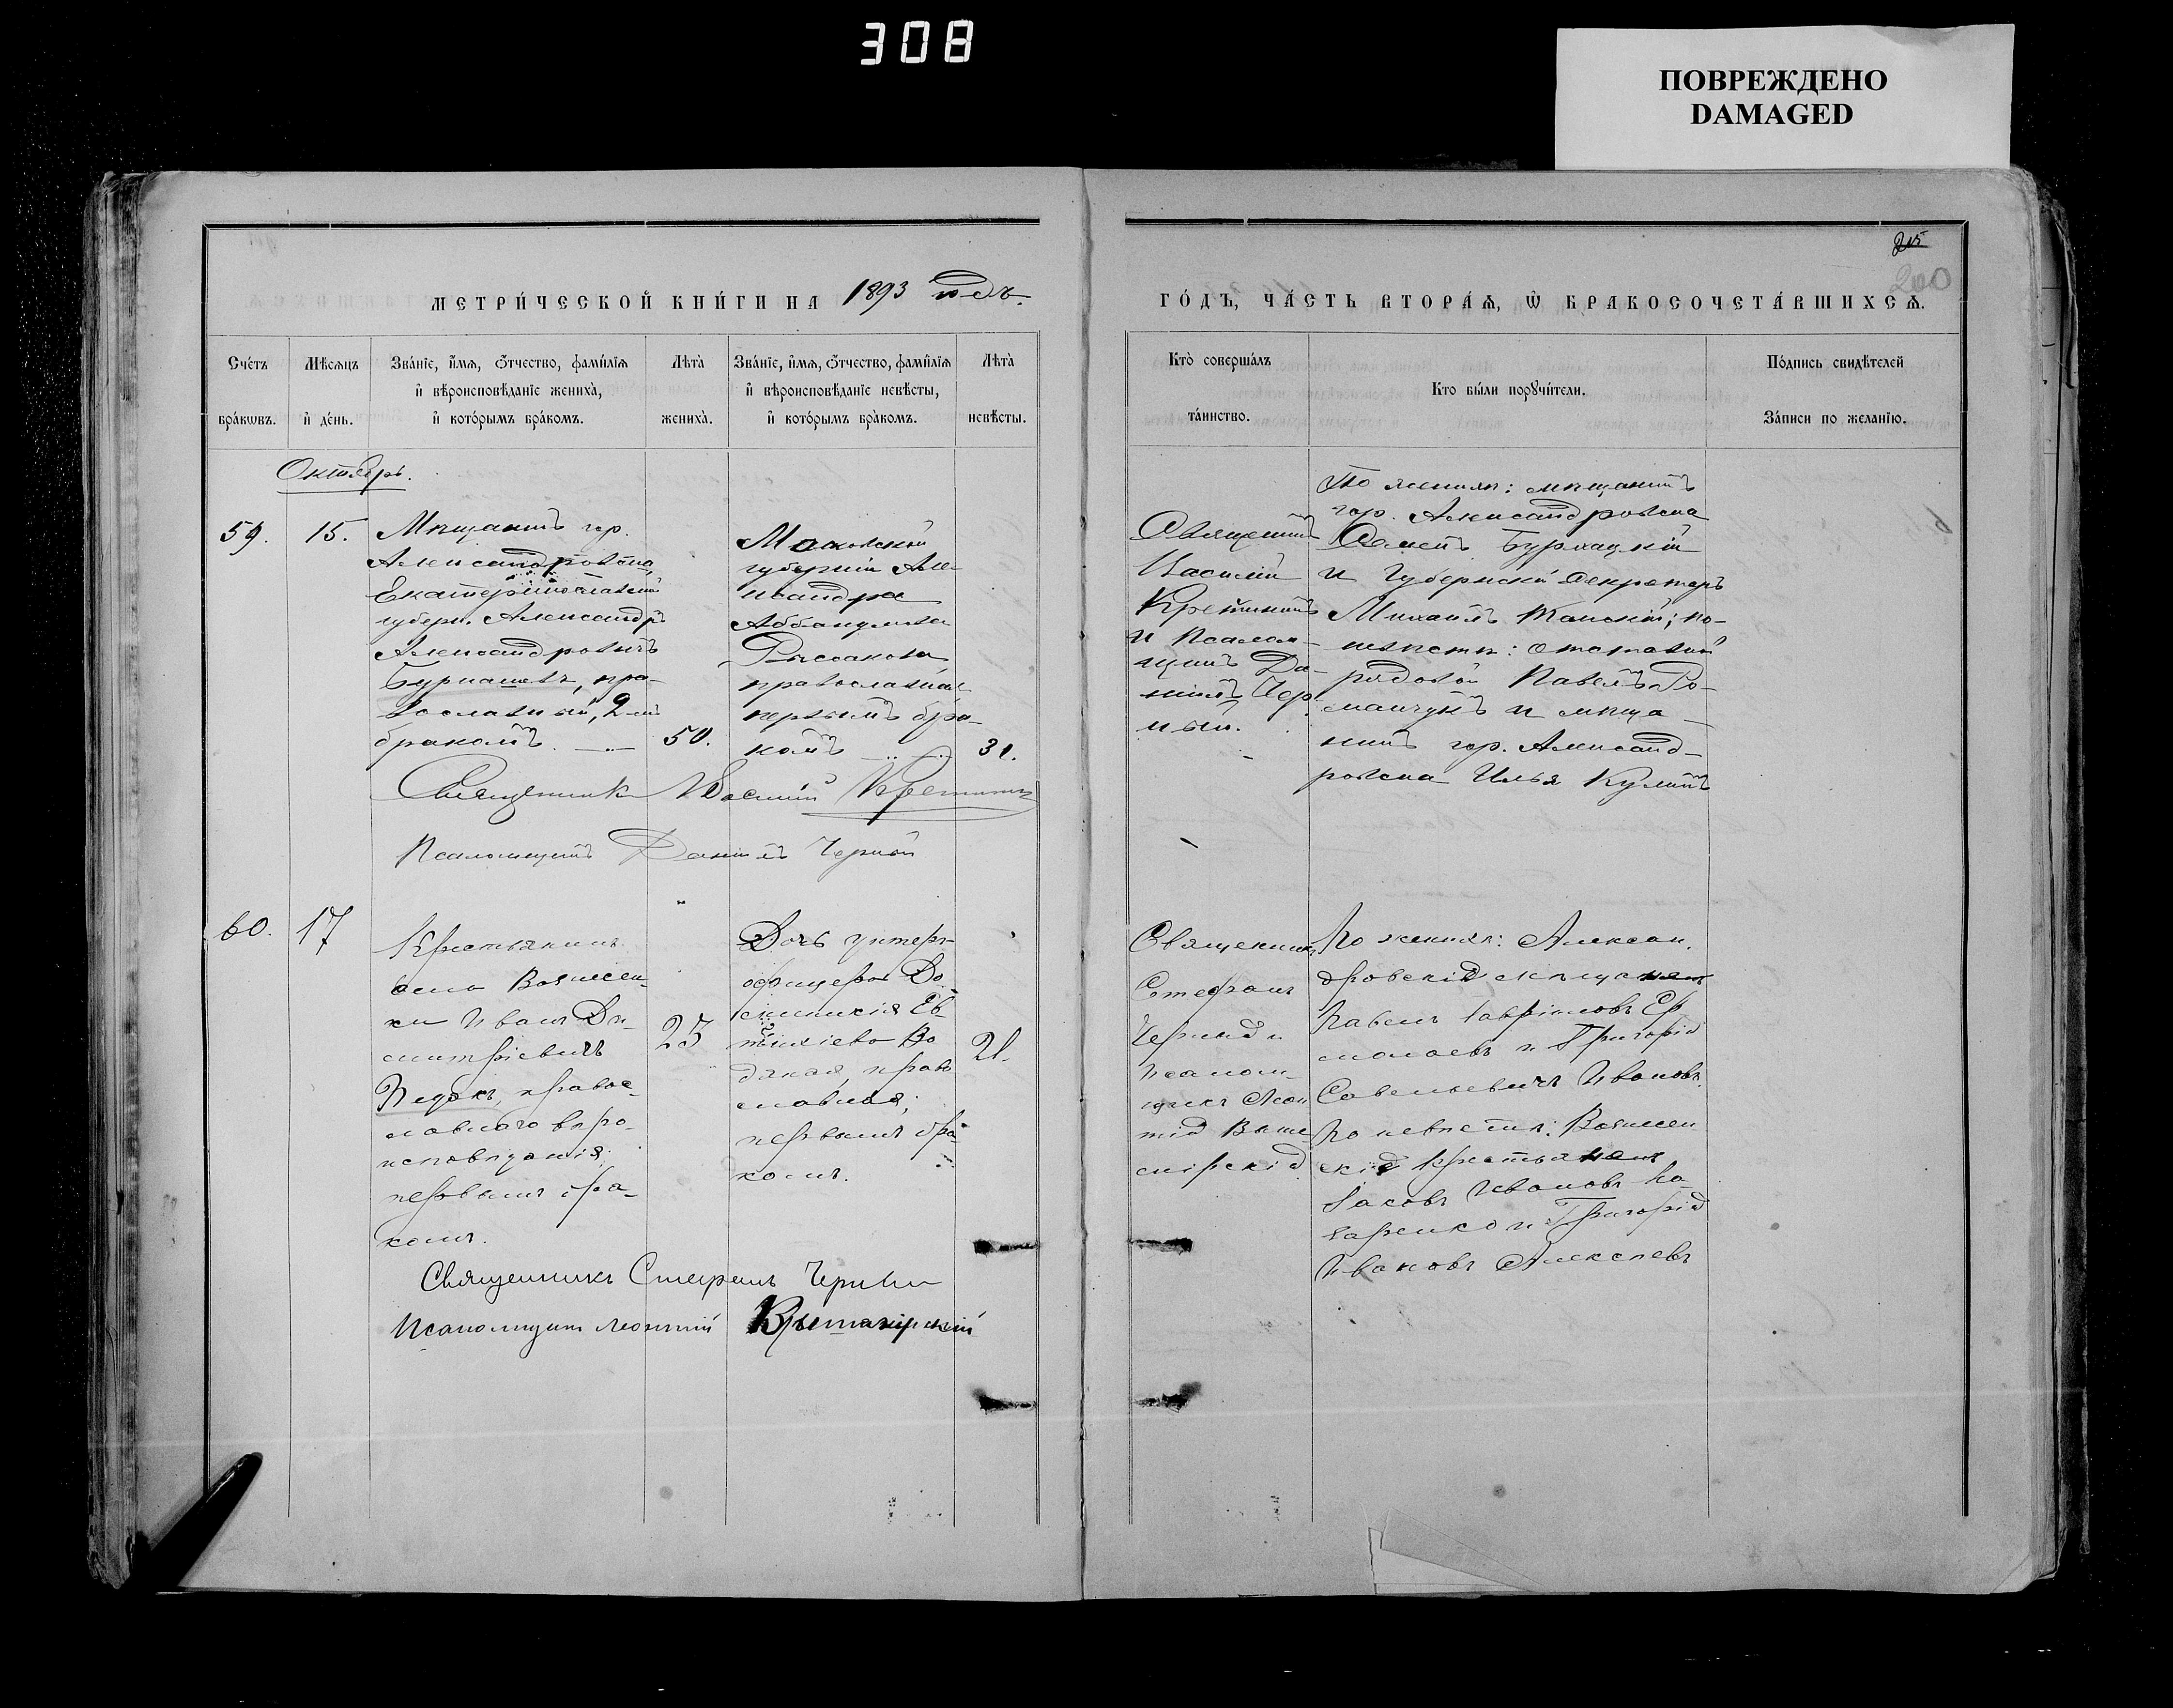 308
ПОВРЕЖДЕНО
DAMAGED
205
200
МЕТРИ́ЧЕСКОЙ КНИ́ГИ НА 1893 годъ.
ГО́ДЪ, ЧА́СТЬ ВТОРА́Ѧ, Ѡ҆ БРАКОСОЧЕТА́ВШИХСѦ.
Сче́тъ бра́кѡвъ.
Мѣ́сѧцъ и҆ де́нь.
Зва́нїе, и҆́мѧ, ѻ҆́тчество, фамѝлїѧ
и҆ вѣроисповѣ́данїе женихà,
и҆ кото́рымъ бра́комъ.
Лѣтà женихà.
Зва́нїе, и҆́мѧ, ѻ҆́тчество, фамѝлїѧ
и҆ вѣроисповѣ́данїе невѣ́сты,
и҆ кото́рымъ бра́комъ.
Лѣтà невѣ́сты.
Кто̀ соверша́лъ та́инство.
Кто бы́ли порꙋчи́тели.
По́дпись свидѣ́телей
За́писи по жела́нїю.
Октябрь.
59.
15.
Мѣщанинъ гор.
Александровска,
Екатеринославской
губерн. Александръ
Александровичъ
Бурнашевъ, пра-
вославный, 2-мъ
бракомъ.
50.
губерніи Але-
ксандра
Рыссакова
православная
первымъ бра-
комъ
31.
Священникъ
Василій
Кретининъ
и Псалом-
щикъ Да-
ніилъ Чер-
ный.
По женихѣ: мѣщанинъ
гор. Александровска
Семенъ
и Губернскій Секретарь
Михаилъ по-
невѣстѣ: отставной
рядовой Павелъ Ро-
манчукъ и мѣща-
нинъ гор. Александ-
ровска Илья Кулинъ
Священникъ Василій Кретининъ
Псаломщикъ Даніилъ Черный
60.
17
Крестьянинъ
села Вознесен-
ки Иванъ Ди-
митріевичъ
правос-
лавнаго вѣро-
исповѣданія;
первымъ бра-
комъ.
25
Дочь унтеръ-
офицера До-
мникія Ев-
тихіева Во
дяная, право
славная;
первымъ бра-
комъ.
21.
Священникъ
Стефанъ
Черный и
псалом-
щикъ Леон
тій Выше
мірскій
По женихѣ: Алексан-
дровскій мѣщанинъ
Павелъ Гавріиловъ Ер
молаевъ и Григорій
Савельевичъ Ивановъ.
По невѣстѣ: Вознесен
скій крестьянинъ
Іаковъ Ивановъ На-
заренко и Григорій
Ивановъ Алексѣевъ
Священникъ Стефанъ Черный
Псаломщикъ Леонтій Вышемірскій